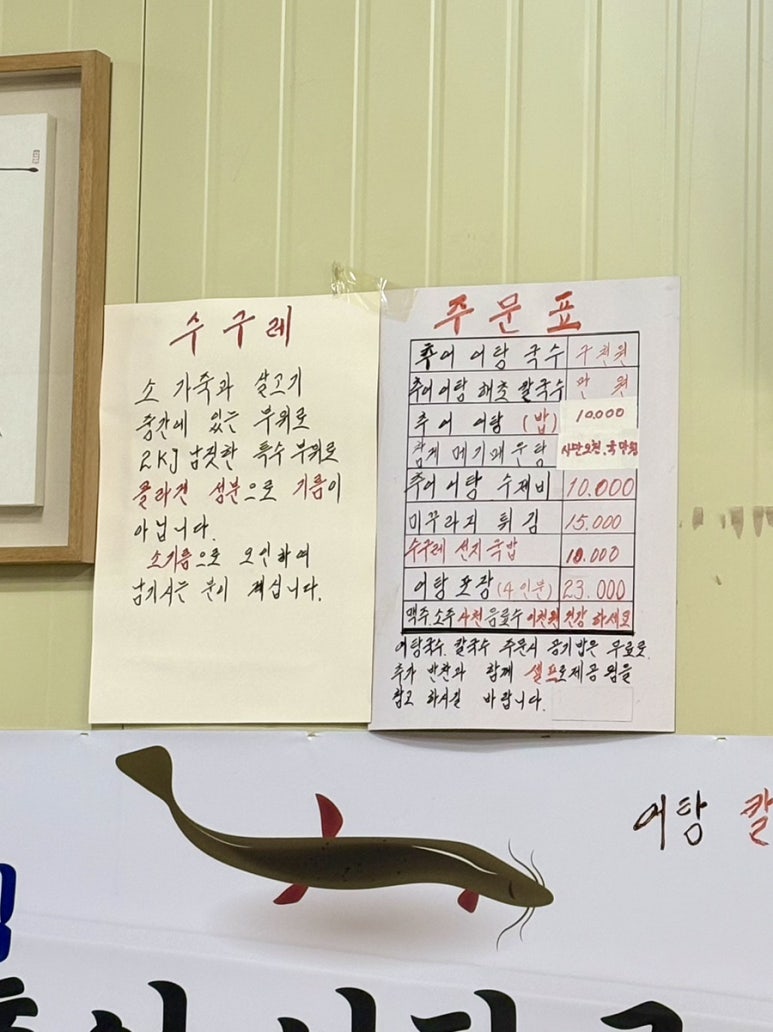 수구레
소 가죽과 살고기
중간에 있는 부위로
2KJ 남짓한 특수부위로
콜라겐 성분으로 기름이
아닙니다.
소기름으로 오인하여
남기시는 분이 계십니다.
주문표
추어 어탕 국수 구천원
추어어탕 해초칼국수 만 원
추어 어탕 (밥) 10.000
참게 메기매운탕 사만오천.육만원
추어 어탕 수제비 10.000
미꾸라지 튀김 15.000
수구레 선지국밥 10.000
어탕 포장 (4인분) 23.000
맥주.소주 사천 음료수 이천원 건강 하세요
어탕국수. 칼국수 주문시 공기밥은 무료로
추가 반찬과 함께 셀프로제공 됨을
참고 하시길 바랍니다.
어탕 칼